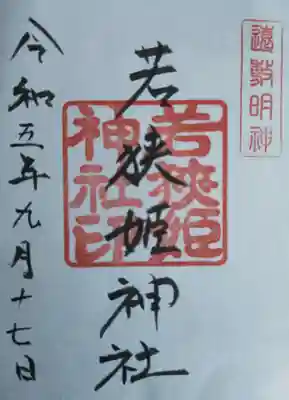 遠敷明神
若狭姫神社
若狭姫
神社印
令和五年九月十七日